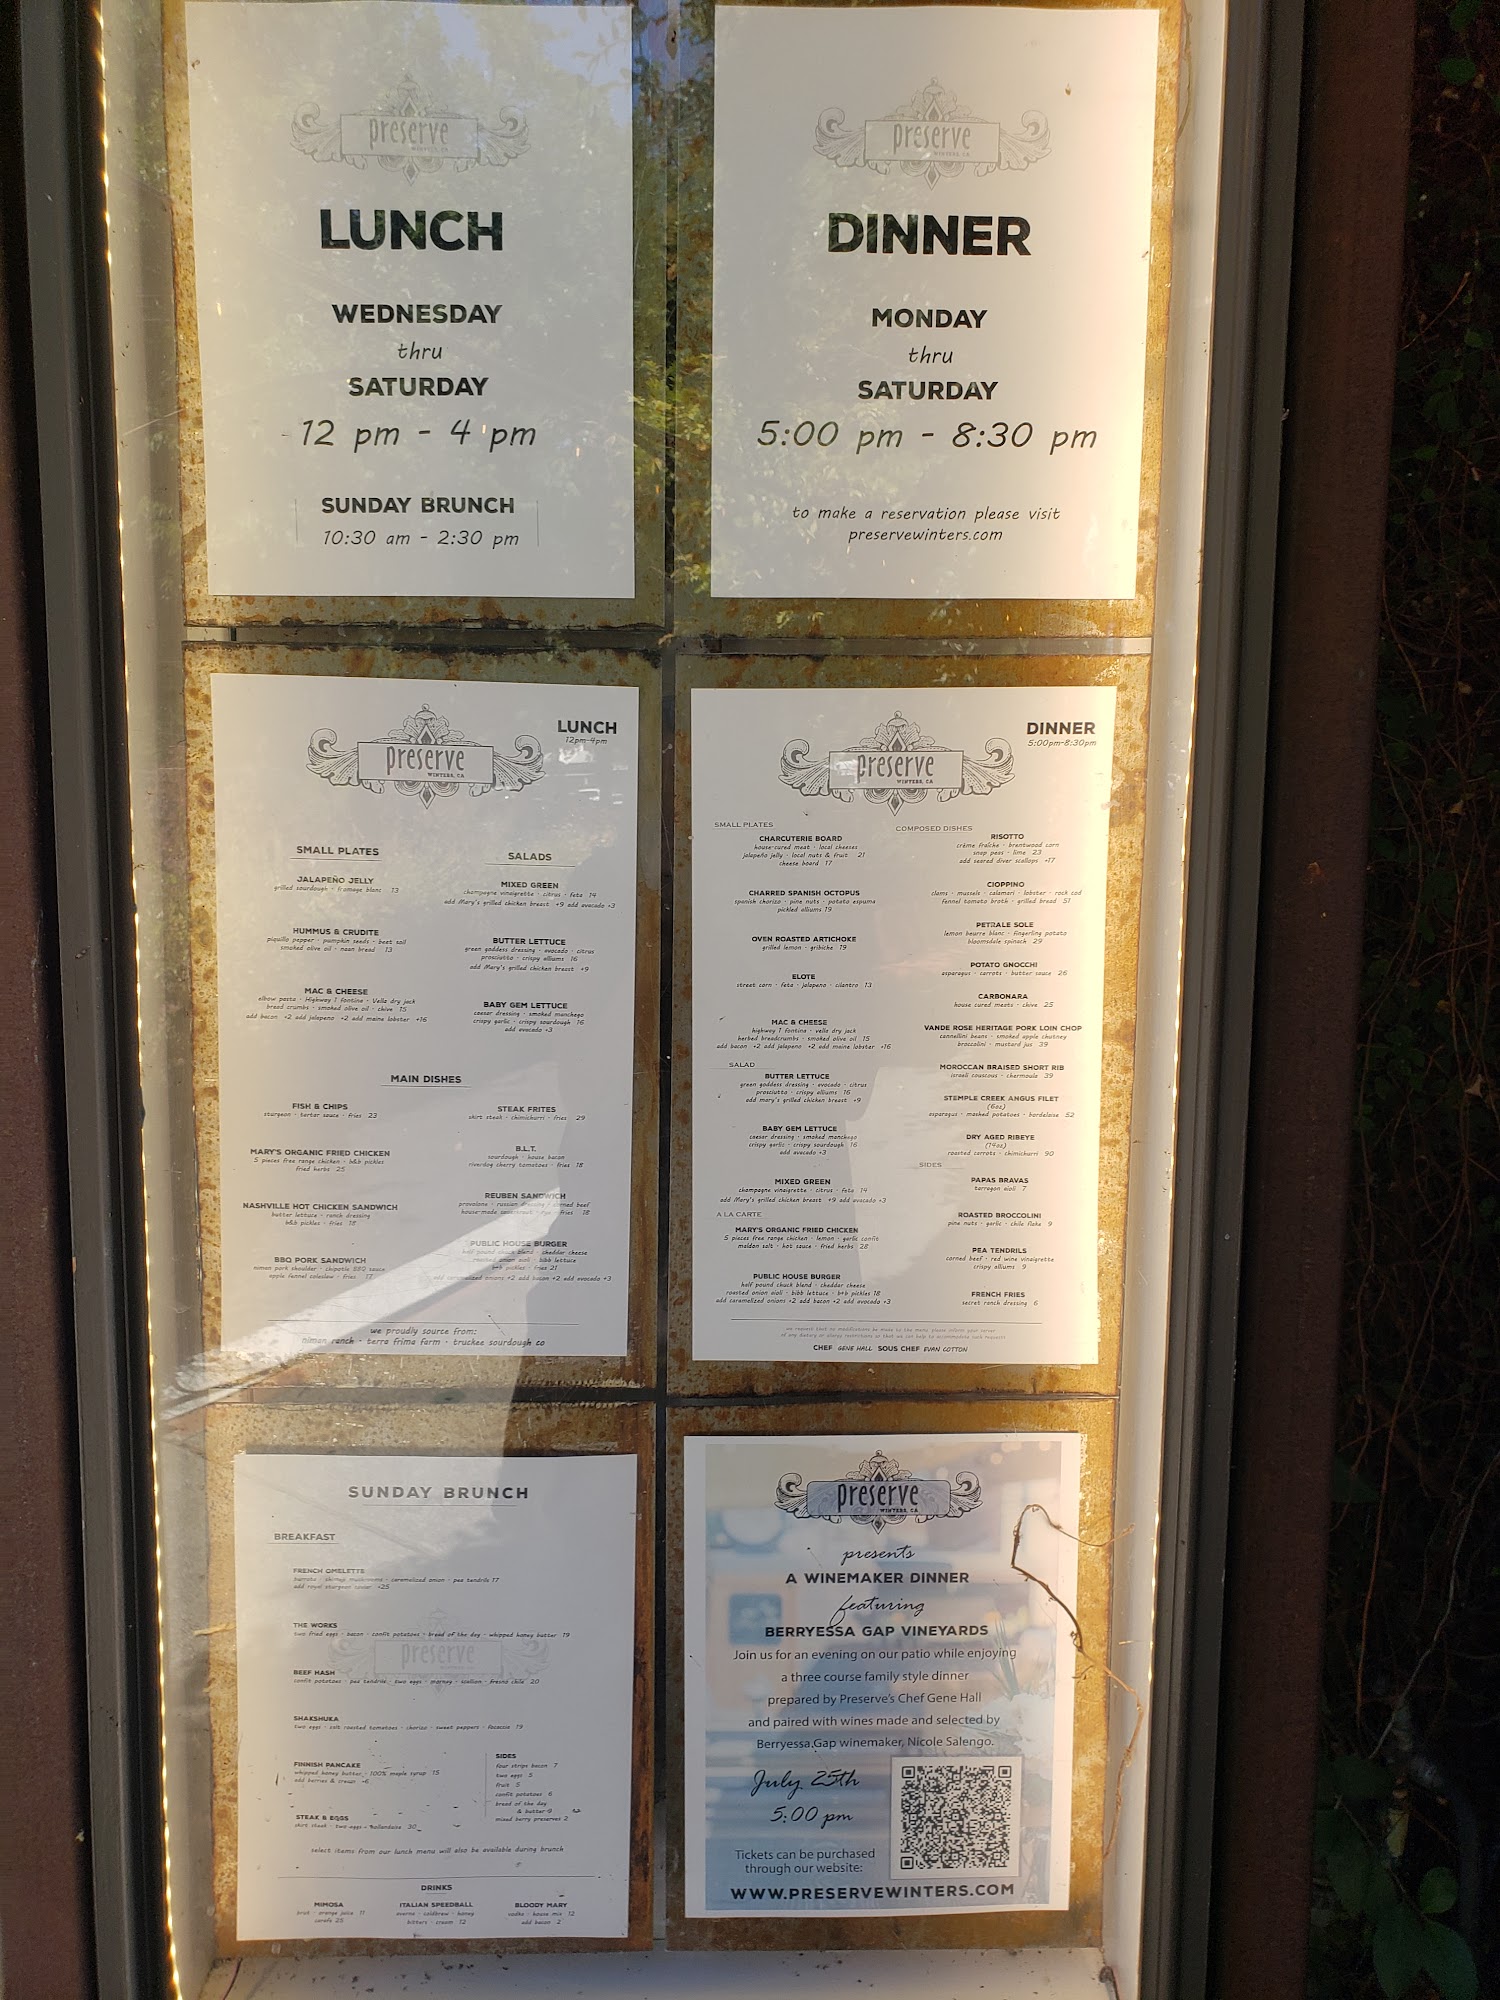 preserve
WINTERS, CA
LUNCH
WEDNESDAY
thru
SATURDAY
12 pm - 4 pm
SUNDAY BRUNCH
10:30 am - 2:30 pm
preserve
WINTERS, CA
DINNER
MONDAY
thru
SATURDAY
5:00 pm - 8:30 pm
to make a reservation please visit
preservewinters.com
preserve
WINTERS, CA
LUNCH
12pm-4pm
SMALL PLATES
JALAPEÑO JELLY
grilled sourdough · fromage blanc 13
HUMMUS & CRUDITE
piquillo pepper · pumpkin seeds · beet soil
smoked olive oil · naan bread 13
MAC & CHEESE
elbow pasta · Highway 1 fontina · Vella dry jack
bread crumbs · smoked olive oil · chive 15
add bacon +2 add jalapeno +2 add maine lobster +16
SALADS
MIXED GREEN
champagne vinaigrette · citrus · feta 14
add Mary's grilled chicken breast +9 add avocado +3
BUTTER LETTUCE
green goddess dressing · avocado · citrus
prosciutto · crispy alliums 16
add Mary's grilled chicken breast +9
BABY GEM LETTUCE
caesar dressing · smoked manchego
crispy garlic · crispy sourdough 16
add avocado +3
MAIN DISHES
FISH & CHIPS
sturgeon · tartar sauce · fries 23
MARY'S ORGANIC FRIED CHICKEN
5 pieces free range chicken · b&b pickles
fried herbs 25
NASHVILLE HOT CHICKEN SANDWICH
butter lettuce · ranch dressing
b&b pickles · fries 18
BBQ PORK SANDWICH
niman pork shoulder · chipotle BBQ sauce
apple fennel coleslaw · fries 17
STEAK FRITES
skirt steak · chimichurri · fries 29
B.L.T.
sourdough · house bacon
riverdog cherry tomatoes · fries 18
REUBEN SANDWICH
provolone · russian dressing · corned beef
house-made sauerkraut · rye · fries 18
PUBLIC HOUSE BURGER
half pound chuck blend · cheddar cheese
roasted onion aioli · bibb lettuce
b+b pickles · fries 21
add caramelized onions +2 add bacon +2 add avocado +3
we proudly source from:
niman ranch · terra firma farm · truckee sourdough co
preserve
WINTERS, CA
DINNER
5:00pm-8:30pm
SMALL PLATES
CHARCUTERIE BOARD
house-cured meat · local cheeses
jalapeño jelly · local nuts & fruit 21
cheese board 17
CHARRED SPANISH OCTOPUS
spanish chorizo · pine nuts · potato espuma
pickled alliums 19
OVEN ROASTED ARTICHOKE
grilled lemon · gribiche 19
ELOTE
street corn · feta · jalapeno · cilantro 13
MAC & CHEESE
highway 1 fontina · vella dry jack
herbed breadcrumbs · smoked olive oil 15
add bacon +2 add jalapeno +2 add maine lobster +16
SALAD
BUTTER LETTUCE
green goddess dressing · avocado · citrus
prosciutto · crispy alliums 16
add mary's grilled chicken breast +9
BABY GEM LETTUCE
caesar dressing · smoked manchego
crispy garlic · crispy sourdough 16
add avocado +3
MIXED GREEN
champagne vinaigrette · citrus · feta 14
add Mary's grilled chicken breast +9 add avocado +3
A LA CARTE
MARY'S ORGANIC FRIED CHICKEN
5 pieces free range chicken · lemon · garlic confit
maldon salt · hot sauce · fried herbs 28
PUBLIC HOUSE BURGER
half pound chuck blend · cheddar cheese
roasted onion aioli · bibb lettuce · b+b pickles 18
add caramelized onions +2 add bacon +2 add avocado +3
COMPOSED DISHES
RISOTTO
crème fraîche · brentwood corn
snap peas · lime 23
add seared diver scallops +17
CIOPPINO
clams · mussels · calamari · lobster · rock cod
fennel tomato broth · grilled bread 51
PETRALE SOLE
lemon beurre blanc · fingerling potato
bloomsdale spinach 29
POTATO GNOCCHI
asparagus · carrots · butter sauce 26
CARBONARA
house cured meats · chive 25
VANDE ROSE HERITAGE PORK LOIN CHOP
cannellini beans · smoked apple chutney
broccolini · mustard jus 39
MOROCCAN BRAISED SHORT RIB
israeli couscous · chermoula 39
STEMPLE CREEK ANGUS FILET
(6oz)
asparagus · mashed potatoes · bordelaise 52
DRY AGED RIBEYE
(14oz)
roasted carrots · chimichurri 90
SIDES
PAPAS BRAVAS
tarragon aioli 7
ROASTED BROCCOLINI
pine nuts · garlic · chile flake 9
PEA TENDRILS
corned beef · red wine vinaigrette
crispy alliums 9
FRENCH FRIES
secret ranch dressing 6
we request that no modifications be made to the menu. please inform your server
of any dietary or allergy restrictions so that we can help to accommodate such requests
CHEF GENE HALL SOUS CHEF EVAN COTTON
SUNDAY BRUNCH
BREAKFAST
FRENCH OMELETTE
burrata · shimeji mushrooms · caramelized onion · pea tendrils 17
add royal sturgeon caviar +25
THE WORKS
two fried eggs · bacon · confit potatoes · bread of the day · whipped honey butter 19
preserve
BEEF HASH
confit potatoes · pea tendrils · two eggs · mornay · scallion · fresno chile 20
SHAKSHUKA
two eggs · salt roasted tomatoes · chorizo · sweet peppers · focaccia 19
FINNISH PANCAKE
whipped honey butter · 100% maple syrup 15
add berries & cream +6
STEAK & EGGS
skirt steak · two eggs · hollandaise 30
SIDES
four strips bacon 7
two eggs 5
fruit 5
confit potatoes 6
bread of the day
& butter 9
mixed berry preserves 2
select items from our lunch menu will also be available during brunch
DRINKS
MIMOSA
brut · orange juice 11
carafe 25
ITALIAN SPEEDBALL
averna · coldbrew · honey
bitters · cream 12
BLOODY MARY
vodka · house mix 12
add bacon 2
preserve
WINTERS, CA
presents
A WINEMAKER DINNER
featuring
BERRYESSA GAP VINEYARDS
Join us for an evening on our patio while enjoying
a three course family style dinner
prepared by Preserve's Chef Gene Hall
and paired with wines made and selected by
Berryessa Gap winemaker, Nicole Salengo.
July 25th
5:00 pm
Tickets can be purchased
through our website:
WWW.PRESERVEWINTERS.COM